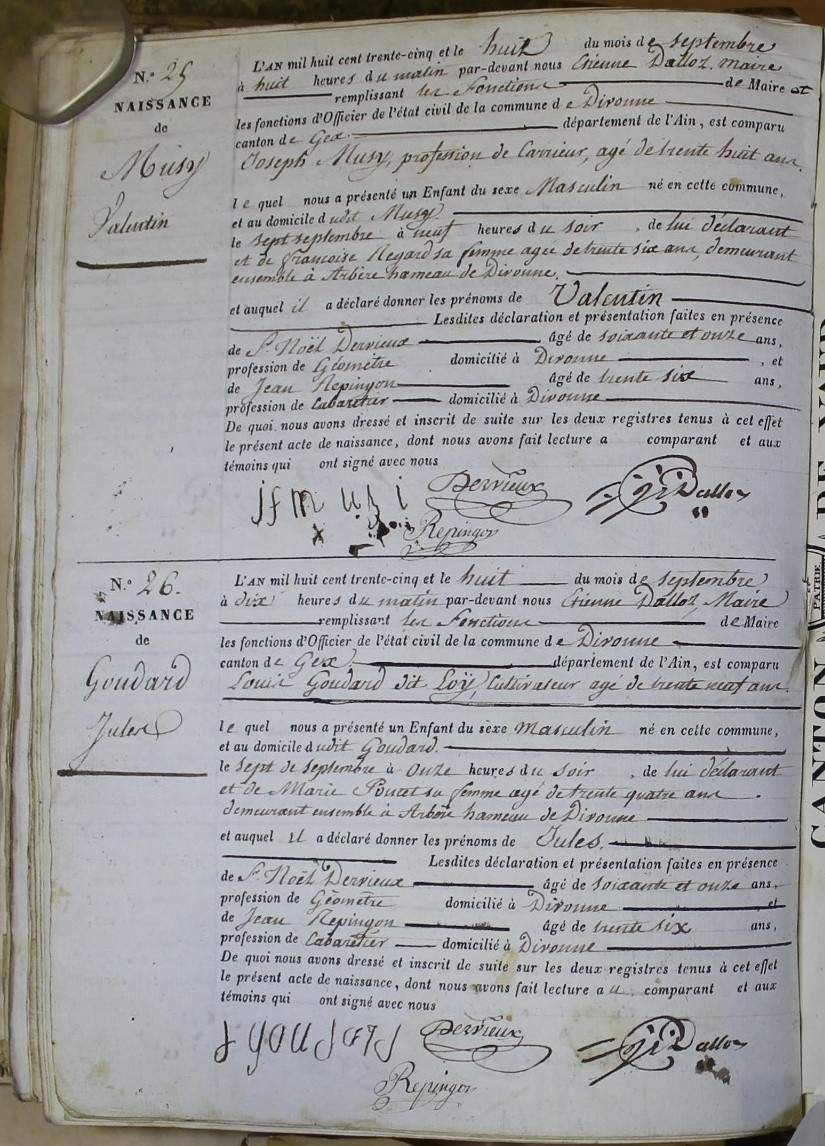 N.° 25
NAISSANCE
de
Musy
Valentin
L'AN mil huit cent trente-cinq et le huit du mois de septembre
à huit heures du matin par-devant nous Etienne Dalloz, maire
remplissant les Fonctions de Maire et
les fonctions d'Officier de l'état civil de la commune de Divonne
canton de Gex département de l'Ain, est comparu
Joseph Musy, profession de Carrieur, agé de trente huit ans.
lequel nous a présenté un Enfant du sexe Masculin né en cette commune,
et au domicile dudit Musy.
le sept septembre à neuf heures du soir, de lui déclarant
et de françoise Regard sa femme agée de trente six ans, demeurant
ensemble à Arbère hameau de Divonne.
et auquel il a déclaré donner les prénoms de Valentin
Lesdites déclaration et présentation faites en présence
de Sr. Noël Dervieux âgé de soixante et onze ans,
profession de Géomètre domicilié à Divonne, et
de Jean Repingon âgé de trente six ans,
profession de Cabaretier domicilié à Divonne
De quoi nous avons dressé et inscrit de suite sur les deux registres tenus à cet effet
le présent acte de naissance, dont nous avons fait lecture a comparant et aux
témoins qui ont signé avec nous
jf musi Dervieux Dalloz
Repingon
N.° 26.
NAISSANCE
de
Goudard
Jules
L'AN mil huit cent trente-cinq et le huit du mois de septembre
à dix heures du matin par-devant nous Etienne Dalloz, Maire
remplissant les Fonctions de Maire
les fonctions d'Officier de l'état civil de la commune de Divonne
canton de Gex. département de l'Ain, est comparu
Louis Goudard dit Loÿ, Cultivateur agé de trente neuf ans.
lequel nous a présenté un Enfant du sexe masculin né en cette commune,
et au domicile dudit Goudard.
le sept de septembre à onze heures du soir, de lui déclarant
et de Marie Poucet sa femme agé de trente quatre ans
demeurant ensemble à Arbère hameau de Divonne
et auquel il a déclaré donner les prénoms de Jules.
Lesdites déclaration et présentation faites en présence
de Sr. Noël Dervieux âgé de soixante et onze ans,
profession de Géomètre domicilié à Divonne et
de Jean Repingon âgé de trente six ans,
profession de Cabaretier domicilié à Divonne
De quoi nous avons dressé et inscrit de suite sur les deux registres tenus à cet effet
le présent acte de naissance, dont nous avons fait lecture au comparant et aux
témoins qui ont signé avec nous
Dervieux Dalloz
Repingon
CANTON DE VAUD
PATRIE